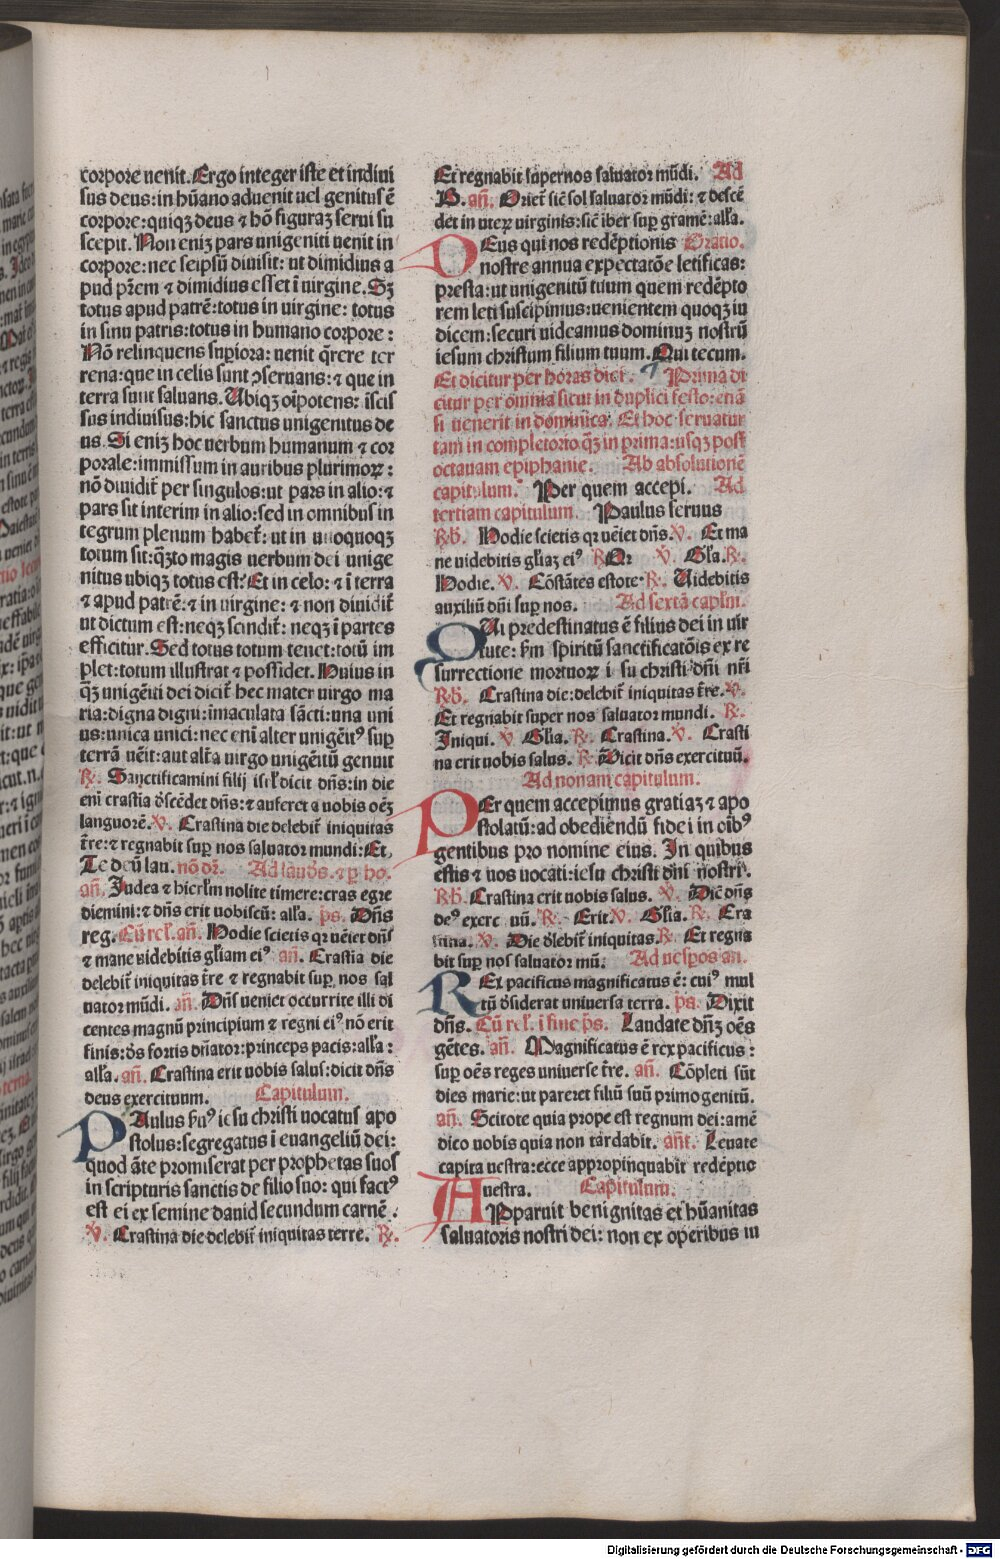 corpore uenit. Ergo integer iste et indiui
sus deus: in hūano aduenit uel genitus ē
corpore: quiqꝫ deus ⁊ hō figuraꝫ serui su
scepit. Non eniꝫ pars unigeniti uenit in
corpore: nec seipsū diuisit: ut dimidius a
pud pr̄em ⁊ dimidius esset ī uirgine. Sꝫ
totus apud patrē: totus in uirgine: totus
in sinu patris: totus in humano corpore:
Nō relinquens supiora: uenit q̄rere ter
rena: que in celis sunt ɔseruans: ⁊ que in
terra sunt saluans. Ubiqꝫ oīpotens: īscis
sus indiuisus: hic sanctus unigenitus de
us. Si eniꝫ hoc uerbum humanum ⁊ cor
porale: immissum in auribus plurimoꝝ:
nō diuidit̄ per singulos: ut pars in alio: ⁊
pars sit interim in alio: sed in omnibus in
tegrum plenum habet̄: ut in unoquoqꝫ
totum sit: q̄ꝫto magis uerbum dei unige
nitus ubiqꝫ totus est? Et in celo: ⁊ ī terra
⁊ apud patrē: ⁊ in uirgine: ⁊ non diuidit̄
ut dictum est: neqꝫ scindit̄: neqꝫ ī partes
efficitur. Sed totus totum tenet: totū im
plet: totum illustrat ⁊ possidet. Huius in
q̄ꝫ unigēiti dei dicit̄ hec mater uirgo ma
ria: digna digni: īmaculata sācti: una uni
us: unica unici: nec enī alter unigēitꝰ sup
terrā uēit: aut alt̄a uirgo unigēitū genuit
℟. Sanctificamini filij isrl̄ dicit dn̄s: in die
enī crastīa d̄scēdet dn̄s: ⁊ auferet a uobis oēꝫ
languorē. ℣. Crastina die delebit̄ iniquitas
t̄re: ⁊ regnabit sup nos saluator mundi: Et,
Te deū lau. nō dr̄. Ad laud̄s. ⁊ p ho.
an̄. Judea ⁊ hierl̄m nolite timere: cras egre
diemini: ⁊ dn̄s erit uobiscū: all̄a. ps. Dn̄s
reg. Cū rel̄. an̄. Hodie scietis qꝛ uēiet dn̄s
⁊ mane uidebitis gl̄iam eiꝰ an̄. Crastīa die
delebit̄ iniquitas t̄re ⁊ regnabit sup nos sal
uator mūdi. an̄. Dn̄s ueniet occurrite illi di
centes magnū principium ⁊ regni eiꝰ nō erit
finis: d̄s fortis dn̄ator: princeps pacis: all̄a:
all̄a. an̄. Crastina erit uobis salus: dicit dn̄s
deus exercituum. Capitulum.
PAulus s̄uꝰ iesu christi uocatus apo
stolus: segregatus ī euangeliū dei:
quod āte promiserat per prophetas suos
in scripturis sanctis de filio suo: qui factꝰ
est ei ex semine dauid secundum carnē.
℣. Crastina die delebit̄ iniquitas terre. ℟.
Et regnabit supernos saluator mūdi. Ad
B. an̄. Oriet̄ sic̄ sol saluator mūdi: ⁊ descē
det in uteꝝ uirginis: sic̄ iber sup gramē: all̄a.
DEus qui nos redēptionis Oratio.
nostre annua expectatōe letificas:
presta: ut unigenitū tuum quem redēpto
rem leti suscipimus: uenientem quoqꝫ iu
dicem: securi uideamus dominuꝫ nostrū
iesum christum filium tuum. Qui tecum.
Et dicitur per horas diei. Prima di
citur per omnia sicut in duplici festo: etiā
si uenerit in dominica. Et hoc seruatur
tam in completorio q̄ꝫ in prima: usqꝫ post
octauam epiphanie. Ab absolutionē
capitulum. Per quem accepi. Ad
tertiam capitulum. Paulus seruus
℟b. Hodie scietis qꝛ uēiet dn̄s. ℣. Et ma
ne uidebitis gl̄iaꝫ eiꝰ ℟ Qꝛ ℣. Gl̄a. ℟.
Hodie. ℣. Cōstātes estote. ℟. Uidebitis
auxiliū dn̄i sup nos. Ad sextā capl̄m.
QUi predestinatus ē filius dei in uir
tute: s̄m spiritū sanctificatōis ex re
surrectione mortuoꝝ iesu christi dn̄i nr̄i
℟b. Crastina die: delebit̄ iniquitas t̄re. ℣.
Et regnabit super nos saluator mundi. ℟.
Iniqui. ℣ Gl̄ia. ℟. Crastina. ℣. Crasti
na erit uobis salus. ℟. Dicit dn̄s exercituū.
Ad nonam capitulum.
PEr quem accepimus gratiaꝫ ⁊ apo
stolatū: ad obediendū fidei in oībꝰ
gentibus pro nomine eius. In quibus
estis ⁊ uos uocati: iesu christi dn̄i nostri.
℟b. Crastina erit uobis salus. ℣. Dic̄ dn̄s
deꝰ exercituū. ℟. Erit ℣. Gl̄ia. ℟. Cra
stina. ℣. Die d̄lebit̄ iniquitas. ℟. Et regna
bit sup nos saluator mū. Ad uesp̄os an̄.
REx pacificus magnificatus ē: cuiꝰ mul
tū d̄siderat uniuersa terra. ps. Dixit
dn̄s. Cū rel̄. ī fine ps̄. Laudate dn̄ꝫ oēs
gētes. an̄. Magnificatus ē rex pacificus:
sup oēs reges uniuerse t̄re. an̄. Cōpleti sūt
dies marie: ut pareret filiū suū primogenitū.
an̄. Scitote quia prope est regnum dei: amē
dico uobis quia non tardabit. an̄t. Leuate
capita uestra: ecce appropinquabit redēptio
uestra. Capitulum.
APparuit benignitas et hūanitas
saluatoris nostri dei: non ex operibus iu
Digitalisierung gefördert durch die Deutsche Forschungsgemeinschaft - DFG